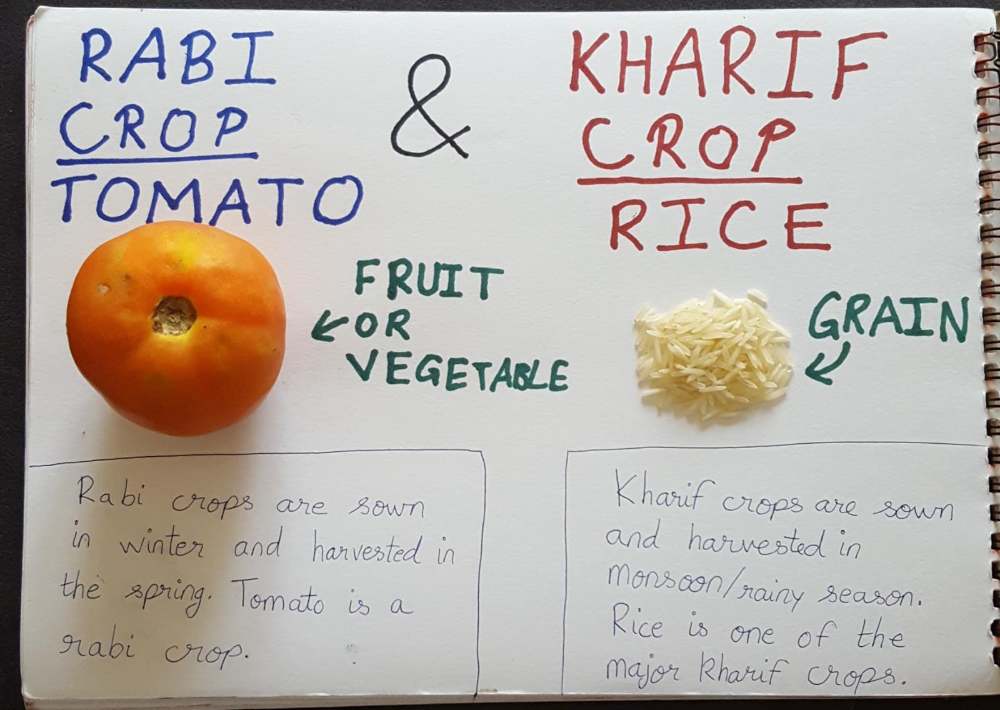 RABI
CROP
TOMATO
&
KHARIF
CROP
RICE
FRUIT
OR
VEGETABLE
GRAIN
Rabi crops are sown
in winter and harvested in
the spring. Tomato is a
rabi crop.
Kharif crops are sown
and harvested in
monsoon/rainy season.
Rice is one of the
major kharif crops.